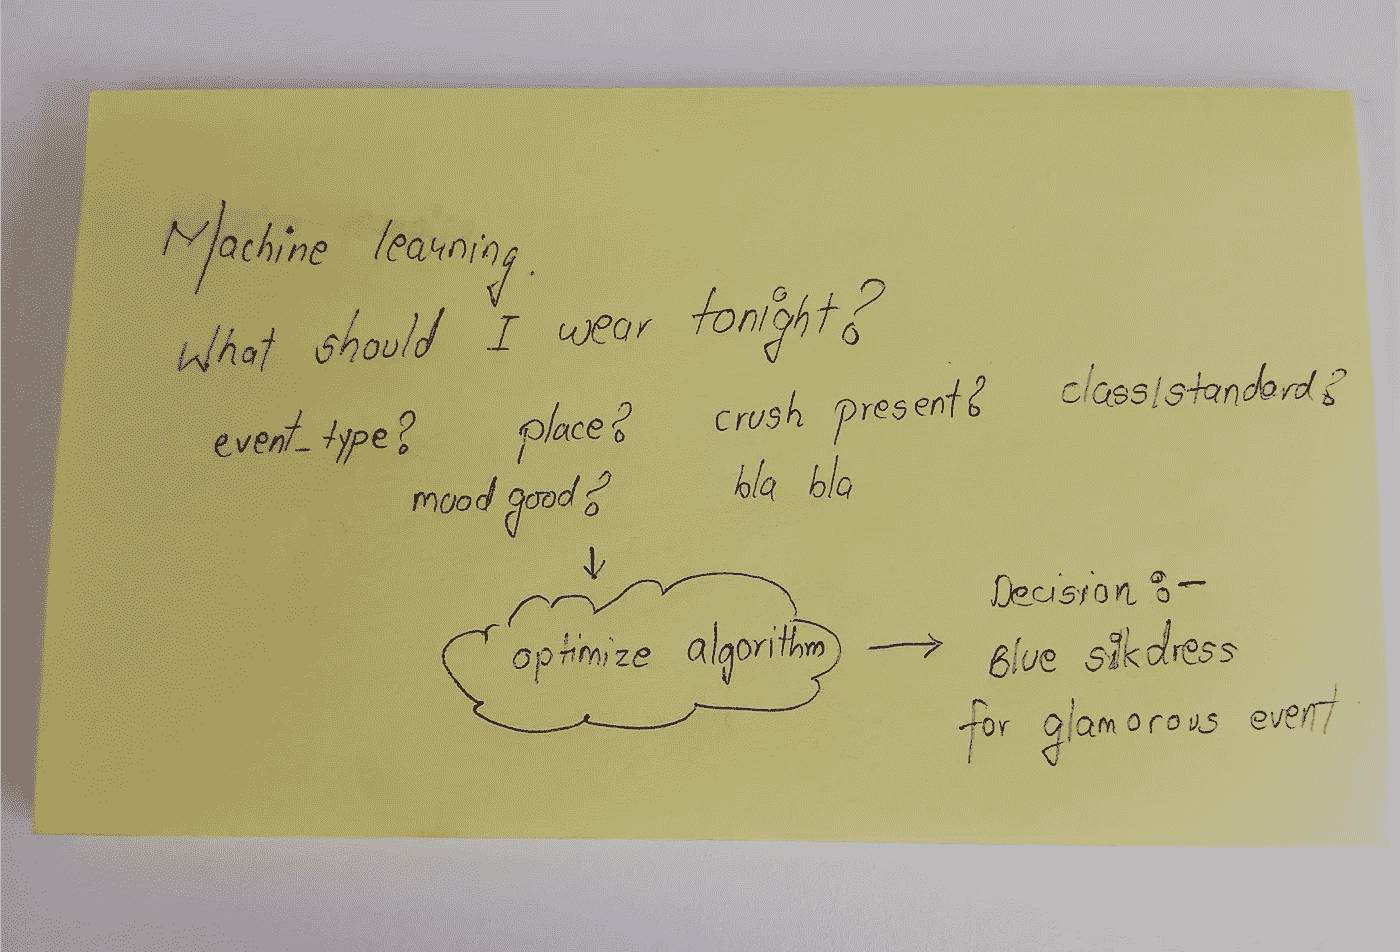 Machine learning.
What should I wear tonight?
event_type? place? crush present? class/standard?
mood good? bla bla
optimize algorithm
Decision :-
Blue silkdress
for glamorous event